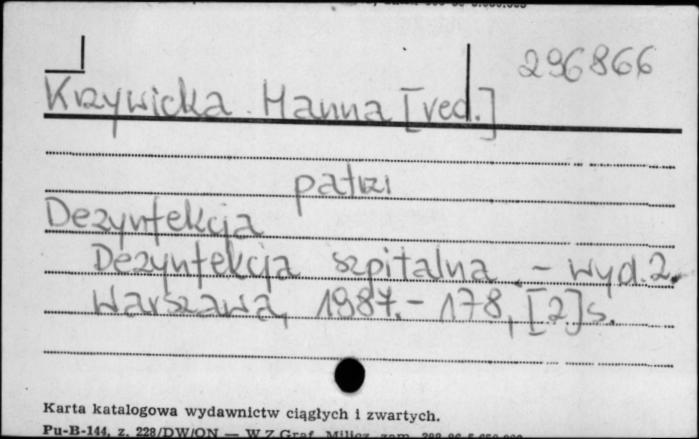 296866
Krzywicka Hanna [red.]
patrz:
Dezynfekcja
Dezynfekcja szpitalna. - wyd. 2.
Warszawa, 1987. - 178, [2] s.
Karta katalogowa wydawnictw ciągłych i zwartych.
Pu-B-144, z. 228/DW/ON — WZGraf. Milicz, zam.